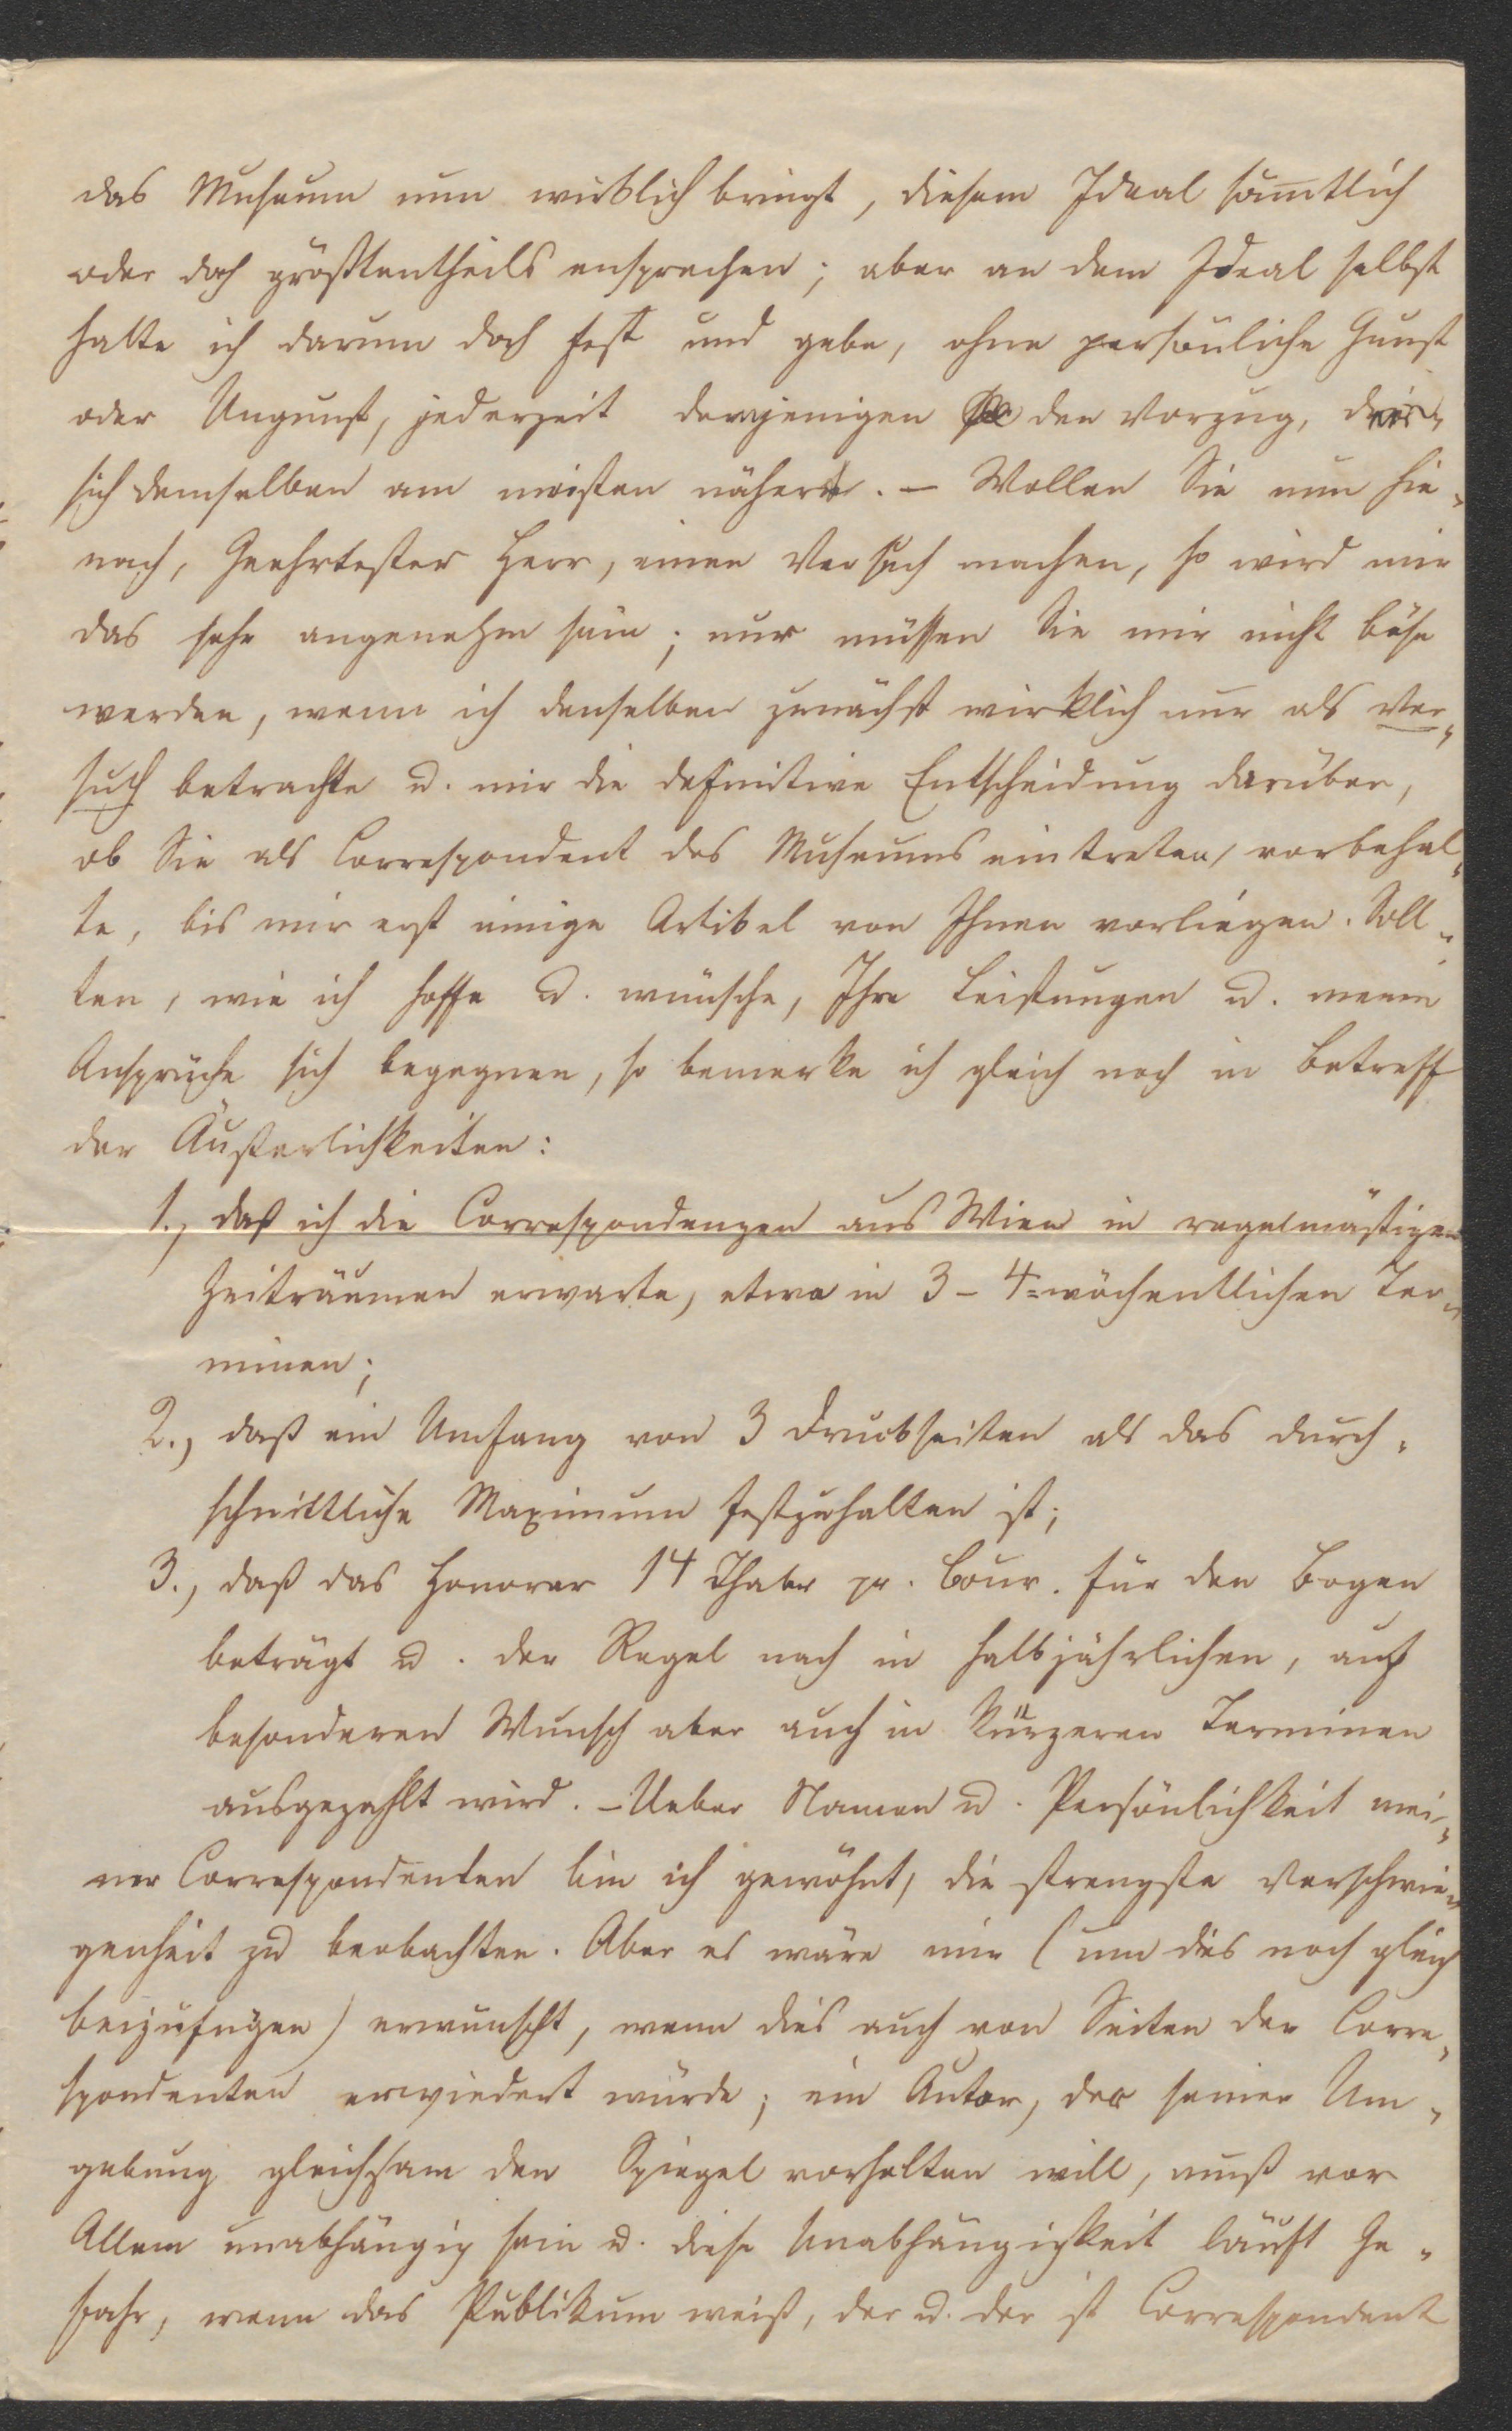 das Museum nun wirklich bringt, diesem Ideal sämtlich
oder doch größtentheils ensprechen; aber an dem Ideal selbst
halte ich darum doch fest und gebe, ohne persönliche Gunst
oder Ungunst, jederzeit demjenigen den Vorzug,
sich demselben am meisten nähert. – Wollen Sie nun hie-
nach, Geehrtester Herr, einen Versuch machen, so wird mir
das sehr angenehm sein; nur müssen Sie mir nicht böse
werden, wenn ich denselben zunächst wirklich nur als Ver-
such betrachte u. mir die definitive Entscheidung darüber,
ob Sie als Correspondent des Museums eintreten, vorbehal-
te, bis mir erst einige Artikel von Ihnen vorliegen. Soll-
ten, wie ich hoffe u. wünsche, Ihre Leistungen u. meine
Ansprüche sich begegnen, so bemerke ich gleich noch in Betreff
der Äußerlichkeiten:
1., daß ich die Correspondenzen aus Wien in regelmäßigen
Zeiträumen erwarte, etwa in 3 – 4=wöchentlichen Ter-
minen;
2., daß ein Umfang von 3 Druckseiten als das durch-
schnittliche Maximum festzuhalten ist;
3., daß das Honorar 14 Thaler pr. Cour. für den Bogen
beträgt u. der Regel nach in halbjährlichen, auf
besonderen Wunsch aber auch in kürzeren Terminen
ausgezahlt wird. – Ueber Namen u. Persönlichkeit mei-
ner Correspondenten bin ich gewöhnt, die strengste Verschwie-
genheit zu beobachten. Aber es wäre mir (um dies noch gleich
beizufügen) erwünscht, wenn dies auch von Seiten der Corre-
spondenten erwiedert würde; ein Autor, der seiner Um-
gebung gleichsam den Spiegel vorhalten will, muß vor
Allem unabhängig sein u. diese Unabhängigkeit läuft Ge-
fahr, wenn das Publikum weiß, der u. der ist Correspondent